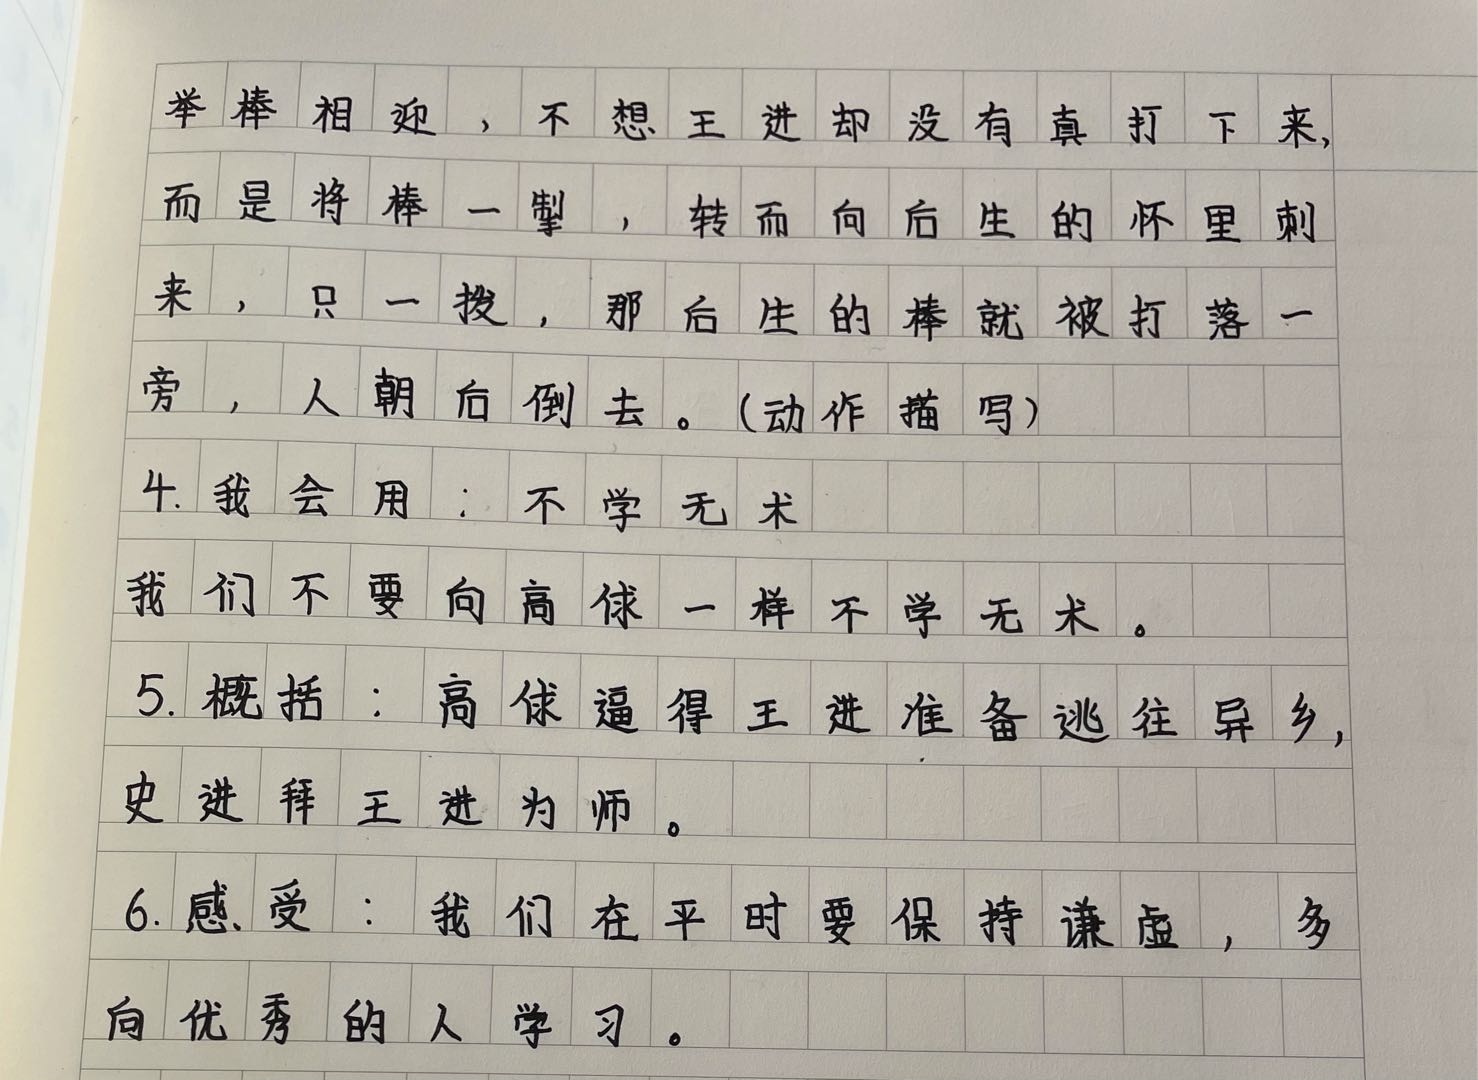 举棒相迎，不想王进却没有真打下来，
而是将棒一掣，转而向后生的怀里刺
来，只一拨，那后生的棒就被打落一
旁，人朝后倒去。（动作描写）
4.我会用：不学无术
我们不要向高俅一样不学无术。
5.概括：高俅逼得王进准备逃往异乡，
史进拜王进为师。
6.感受：我们在平时要保持谦虚，多
向优秀的人学习。